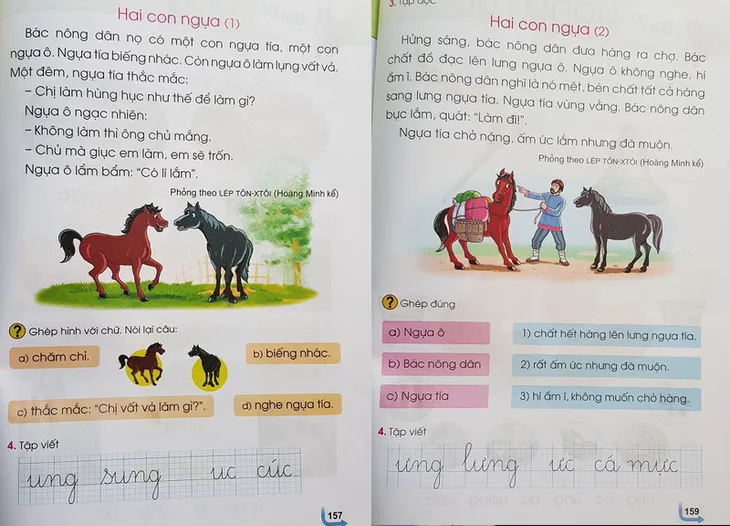 Hai con ngựa (1)
Bác nông dân nọ có một con ngựa tía, một con
ngựa ô. Ngựa tía biếng nhác. Còn ngựa ô làm lụng vất vả.
Một đêm, ngựa tía thắc mắc:
– Chị làm hùng hục như thế để làm gì?
Ngựa ô ngạc nhiên:
– Không làm thì ông chủ mắng.
– Chủ mà giục em làm, em sẽ trốn.
Ngựa ô lẩm bẩm: “Có lí lắm”.
Phỏng theo LÉP TÔN-XTÔI (Hoàng Minh kể)
? Ghép hình với chữ. Nói lại câu:
a) chăm chỉ.
b) biếng nhác.
c) thắc mắc: “Chị vất vả làm gì?”.
d) nghe ngựa tía.
4. Tập viết
ung sung uc cúc
157
3. Tập đọc
Hai con ngựa (2)
Hửng sáng, bác nông dân đưa hàng ra chợ. Bác
chất đồ đạc lên lưng ngựa ô. Ngựa ô không nghe, hí
ầm ĩ. Bác nông dân nghĩ là nó mệt, bèn chất tất cả hàng
sang lưng ngựa tía. Ngựa tía vùng vằng. Bác nông dân
bực lắm, quát: “Làm đi!”.
Ngựa tía chở nặng, ấm ức lắm nhưng đã muộn.
Phỏng theo LÉP TÔN-XTÔI (Hoàng Minh kể)
? Ghép đúng
a) Ngựa ô
1) chất hết hàng lên lưng ngựa tía.
b) Bác nông dân
2) rất ấm ức nhưng đã muộn.
c) Ngựa tía
3) hí ầm ĩ, không muốn chở hàng.
4. Tập viết
ưng lưng ưc cá mực
159